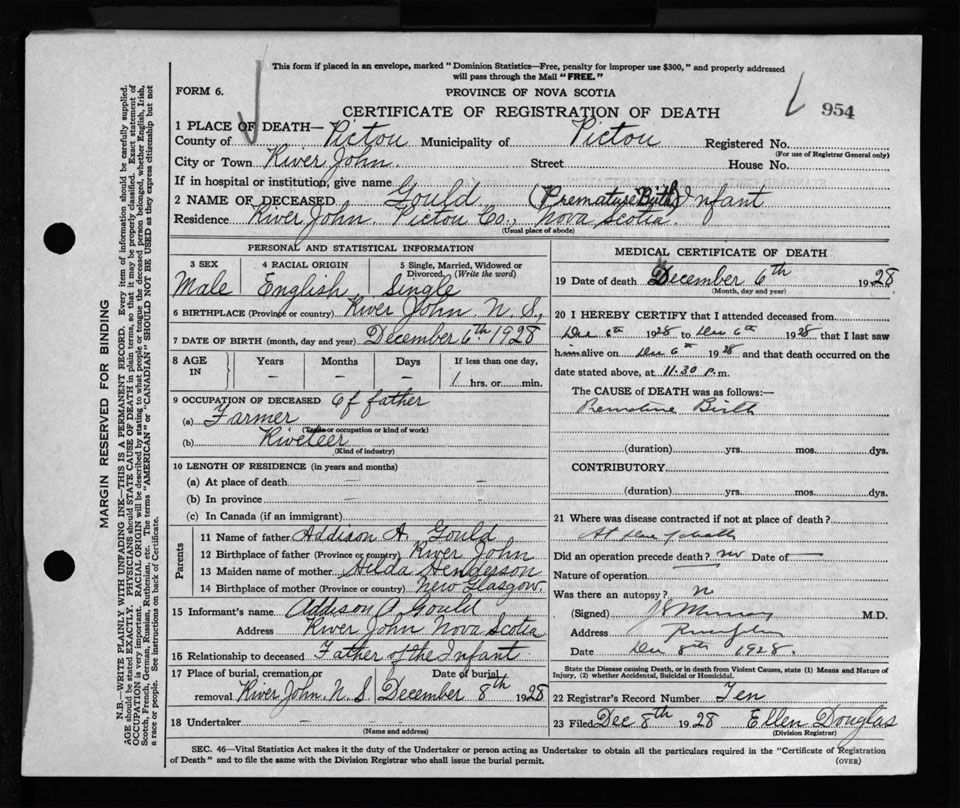 This form if placed in an envelope, marked "Dominion Statistics—Free, penalty for improper use $300," and properly addressed
will pass through the Mail "FREE."
FORM 6.
PROVINCE OF NOVA SCOTIA
CERTIFICATE OF REGISTRATION OF DEATH
954
1 PLACE OF DEATH—
County of Pictou Municipality of Pictou Registered No.
(For use of Registrar General only)
City or Town River John. Street House No.
If in hospital or institution, give name
2 NAME OF DECEASED Gould (Premature Birth) Infant
Residence River John. Pictou Co., Nova Scotia.
(Usual place of abode)
PERSONAL AND STATISTICAL INFORMATION
3 SEX
Male
4 RACIAL ORIGIN
English
5 Single, Married, Widowed or
Divorced, (Write the word)
Single
6 BIRTHPLACE (Province or country) River John N. S.,
7 DATE OF BIRTH (month, day and year) December 6th. 1928
8 AGE IN
Years
—
Months
—
Days
—
If less than one day,
1 hrs. or min.
9 OCCUPATION OF DECEASED Of father
(a) Farmer
(Trade or occupation or kind of work)
(b) Riveteer
(Kind of industry)
10 LENGTH OF RESIDENCE (in years and months)
(a) At place of death — —
(b) In province — —
(c) In Canada (if an immigrant)
Parents
11 Name of father Addison A. Gould
12 Birthplace of father (Province or country) River John
13 Maiden name of mother Hilda Henderson
14 Birthplace of mother (Province or country) New Glasgow.
15 Informant's name Addison A. Gould
Address River John Nova Scotia
16 Relationship to deceased Father of the Infant.
17 Place of burial, cremation or removal River John, N. S.
Date of burial
December 8th 1928
18 Undertaker — —
(Name and address)
MEDICAL CERTIFICATE OF DEATH
19 Date of death December 6th 1928
(Month, day and year)
20 I HEREBY CERTIFY that I attended deceased from
Dec 6th 1928 to Dec 6th 1928 that I last saw
him alive on Dec 6th 1928 and that death occurred on the
date stated above, at 11.30 p.m.
The CAUSE of DEATH was as follows:—
Premature Birth
(duration) yrs. mos. dys.
CONTRIBUTORY
(duration) yrs. mos. dys.
21 Where was disease contracted if not at place of death?
At place of death
Did an operation precede death? no Date of —
Nature of operation
Was there an autopsy? n
(Signed) M.D.
Address River John
Date Dec 8th 1928.
State the Disease causing Death, or in death from Violent Causes, state (1) Means and Nature of
Injury, (2) whether Accidental, Suicidal or Homicidal.
22 Registrar's Record Number Ten
23 Filed Dec 8th 1928 Ellen Douglas
(Division Registrar)
SEC. 46—Vital Statistics Act makes it the duty of the Undertaker or person acting as Undertaker to obtain all the particulars required in the "Certificate of Registration
of Death" and to file the same with the Division Registrar who shall issue the burial permit.
(OVER)
MARGIN RESERVED FOR BINDING
N.B.—WRITE PLAINLY WITH UNFADING INK—THIS IS A PERMANENT RECORD. Every item of information should be carefully supplied.
AGE should be stated EXACTLY. PHYSICIANS should STATE CAUSE OF DEATH in plain terms, so that it may be properly classified. Exact statement of
OCCUPATION is very important. RACIAL ORIGIN will be described by stating to what people or tongue the deceased person belonged, whether English, Irish,
Scotch, French, German, Russian, Ruthenian, etc. The terms "AMERICAN" or "CANADIAN" SHOULD NOT BE USED as they express citizenship but not
a race or people. See instructions on back of Certificate.